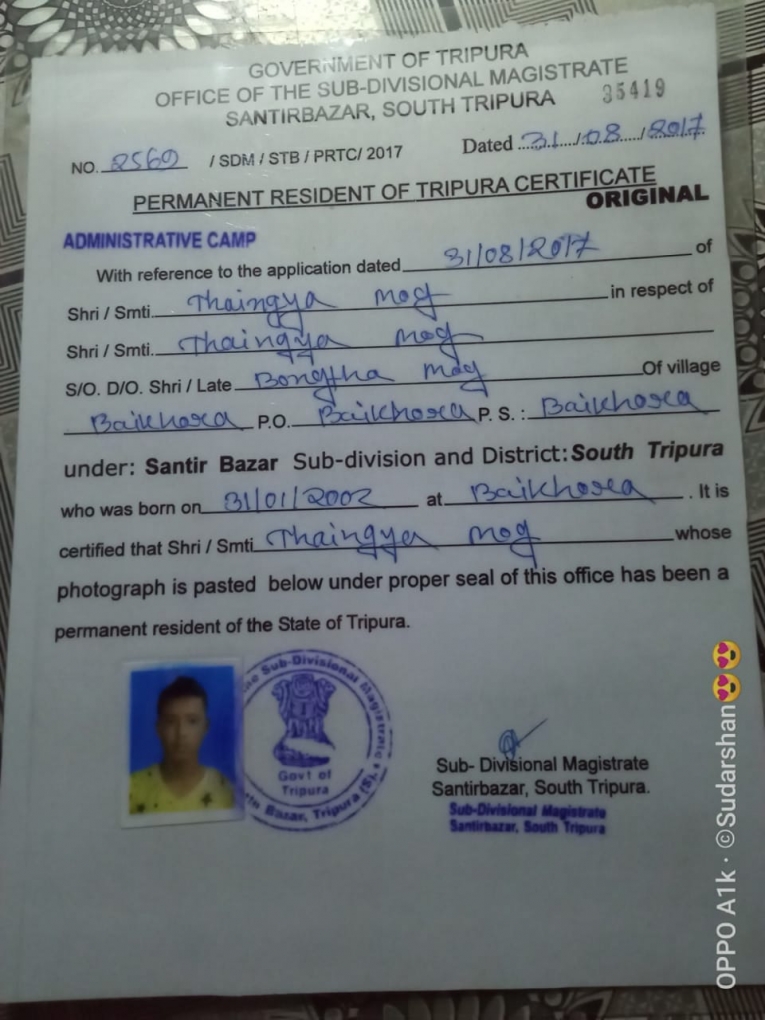 GOVERNMENT OF TRIPURA
OFFICE OF THE SUB-DIVISIONAL MAGISTRATE
SANTIRBAZAR, SOUTH TRIPURA 35419
NO. 2569 / SDM / STB / PRTC/ 2017 Dated 31/08/2017
PERMANENT RESIDENT OF TRIPURA CERTIFICATE
ORIGINAL
ADMINISTRATIVE CAMP
With reference to the application dated 31/08/2017 of
Shri / Smti. Thaingya Mog in respect of
Shri / Smti. Thaingya Mog
S/O. D/O. Shri / Late Bongtha Mog Of village
Baikhora P.O. Baikhora P. S. : Baikhora
under: Santir Bazar Sub-division and District: South Tripura
who was born on 31/01/2002 at Baikhora . It is
certified that Shri / Smti. Thaingya Mog whose
photograph is pasted below under proper seal of this office has been a
permanent resident of the State of Tripura.
Sub-Divisional Magistrate
Govt of
Tripura
Bazar, Tripura (S)
Sub- Divisional Magistrate
Santirbazar, South Tripura.
Sub-Divisional Magistrate
Santirbazar, South Tripura
OPPO A1k · ©Sudarshan😍😍